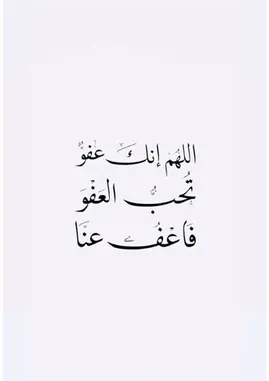 اللهُم إنكَ عفوٌ
تُحبُّ العَفْوَ
فَاعْفُ عنَّا